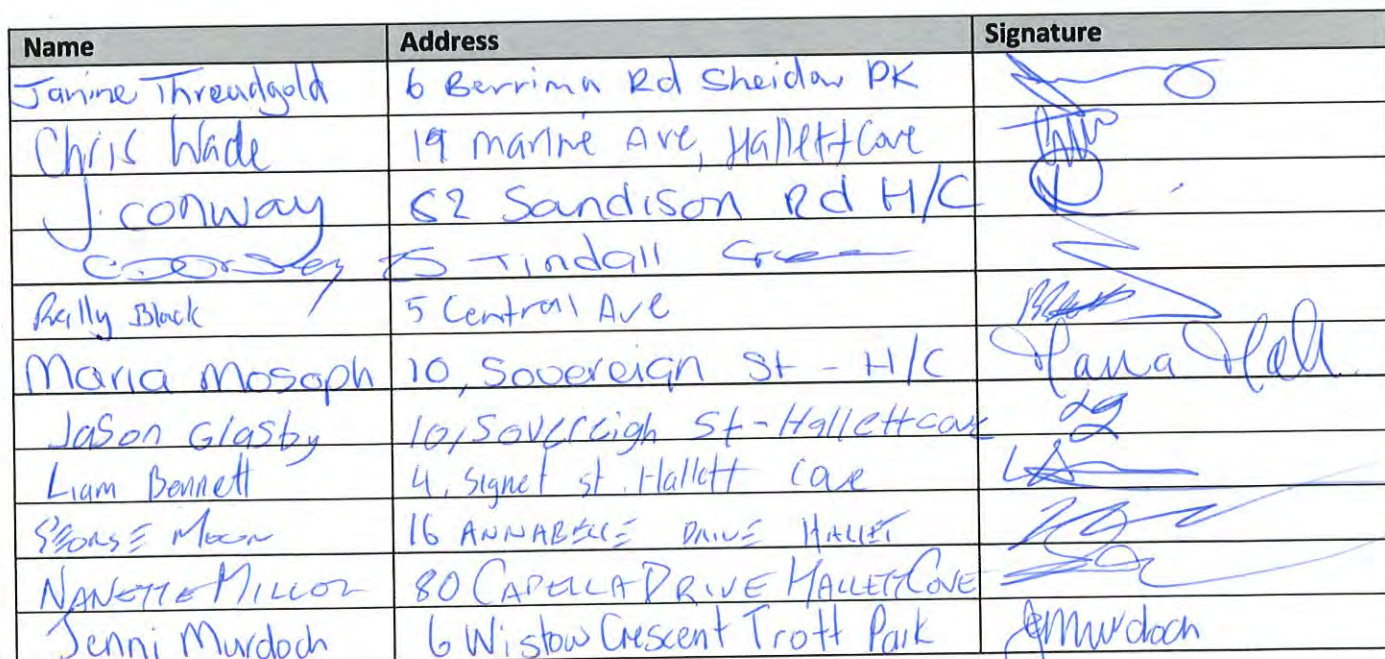 Name Address Signature
Janine Threadgold 6 Berrima Rd Sheidow PK
Chris Wade 19 Marine Ave, Hallett Cove
J. Conway 62 Sandison Rd H/C
Tindall
Reilly Black 5 Central Ave
Maria Mosoph 10, Sovereign St - H/C
Jason Glasby 10, Sovereigh St - Hallett cove
Liam Bennett 4, Signet st. Hallett Cove
GEORGE Moon 16 ANNABELLE DRIVE HALLET
NANETTE 80 CAPELLA DRIVE HALLETT COVE
Jenni Murdoch 6 Wistow Crescent Trott Park JMurdoch